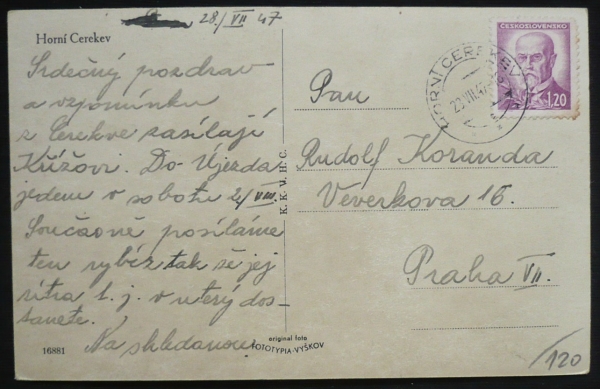 28/VII 47
Horní Cerekev
Srdečný pozdrav
a vzpomínku
z Cerekve zasílají
Křížovi. Do Újezda
jedem v sobotu 2/VIII.
Současně posíláme
ten rybíz tak se jej
zítra t. j. v úterý dos-
tanete.
Na shledanou
16881
K. K. V. H. C.
original foto
FOTOTYPIA-VYŠKOV
ČESKOSLOVENSKO
1.20
HORNÍ CEREKEV
Pan
Rudolf Koranda
Veverkova 16.
Praha VII.
/120